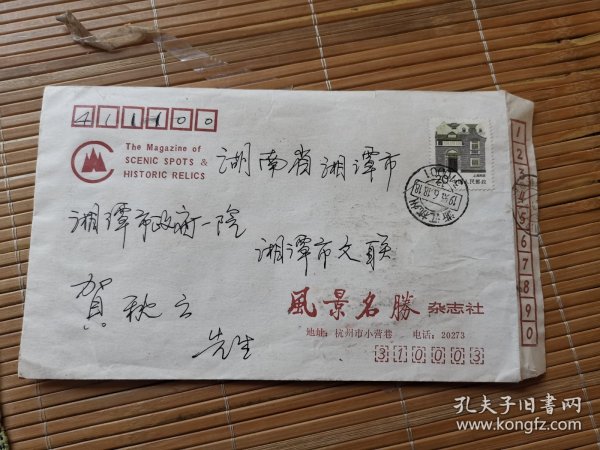 411100
The Magazine of
SCENIC SPOTS &
HISTORIC RELICS
湖南省湘潭市
湘潭市政府一院
湘潭市文联
賀秋云
先生
風景名勝 杂志社
地址：杭州市小营巷 电话：20273
310003
1
2
3
4
5
6
7
8
9
0
孔夫子旧书网
www.kongfz.com